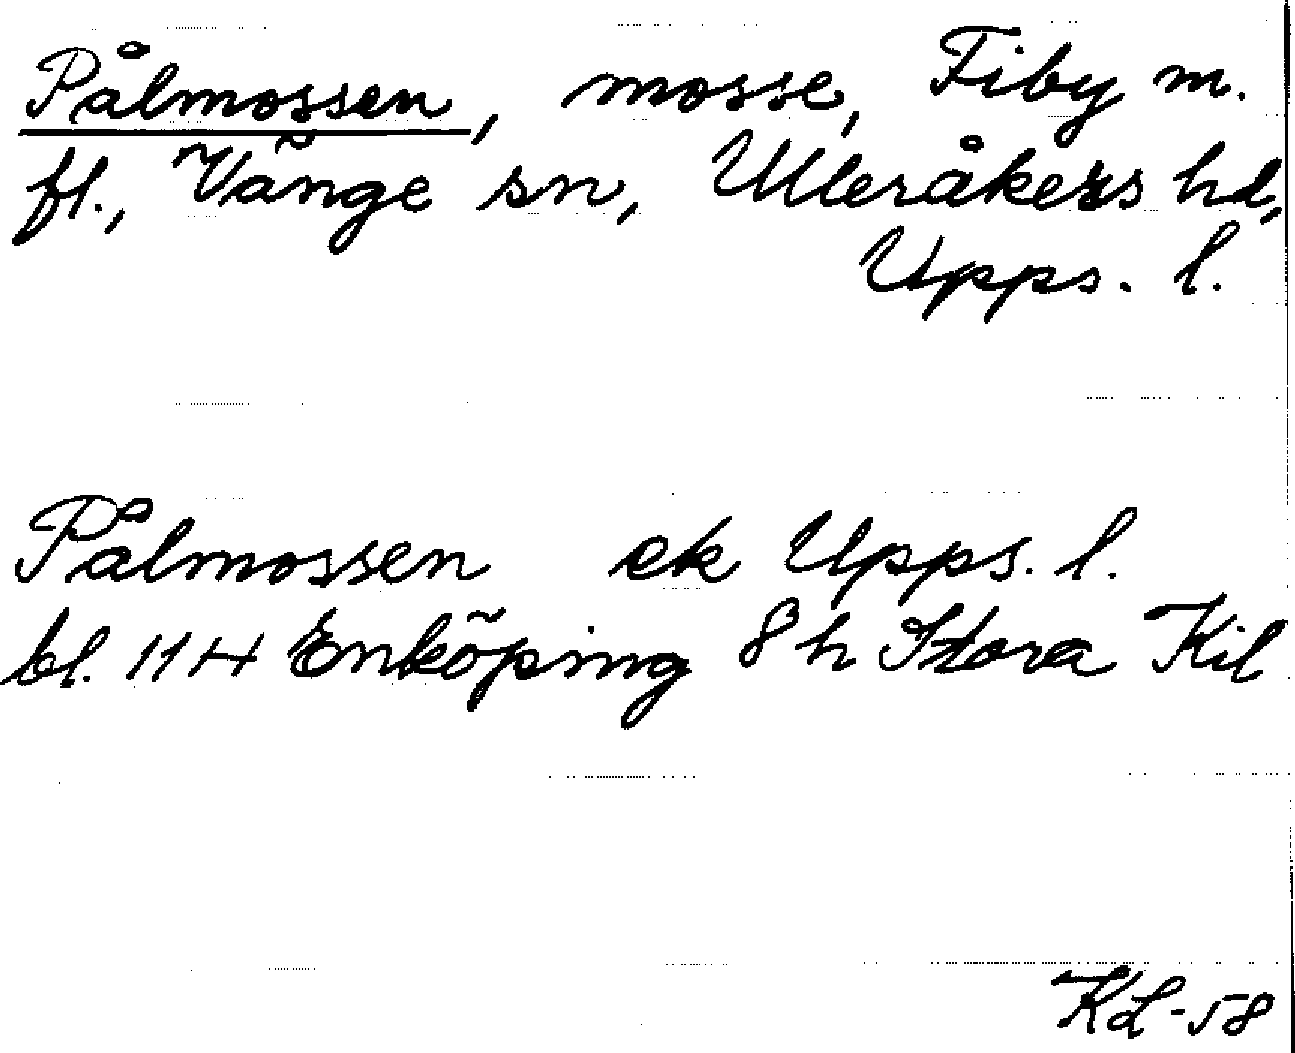 Pålmossen, mosse, Fiby m.
fl., Vänge sn, Ulleråkers hd,
Upps. l.
Pålmossen ek Upps. l.
bl. 114 Enköping 8 h Stora Kil
KL-58